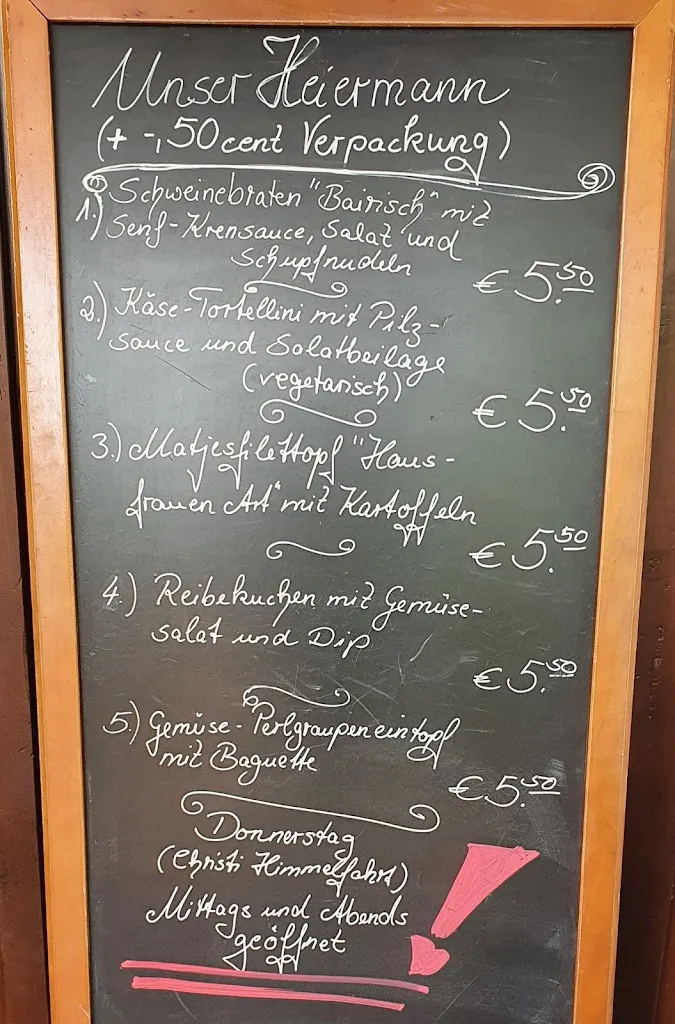 Unser Heiermann
(+ -,50cent Verpackung)
1.) Schweinebraten "Bairisch" mit
Senf-Krensauce, Salat und
Schupfnudeln
€ 5.50
2.) Käse-Tortellini mit Pilz-
sauce und Salatbeilage
(vegetarisch)
€ 5.50
3.) Matjesfilettopf "Haus-
frauen Art" mit Kartoffeln
€ 5.50
4.) Reibekuchen mit Gemüse-
salat und Dip
€ 5.50
5.) Gemüse-Perlgraupeneintopf
mit Baguette
€ 5.50
Donnerstag
(Christi Himmelfahrt)
Mittags und Abends
geöffnet !